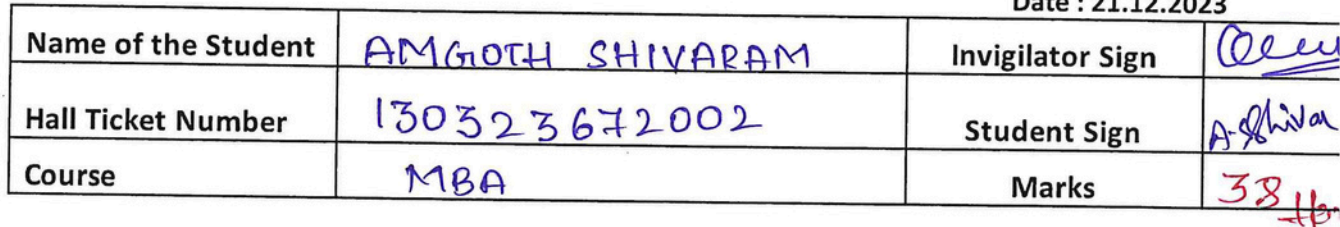 Date : 21.12.2023
Name of the Student AMGOTH SHIVARAM Invigilator Sign
Hall Ticket Number 130323672002 Student Sign A. Shivar
Course MBA Marks 38